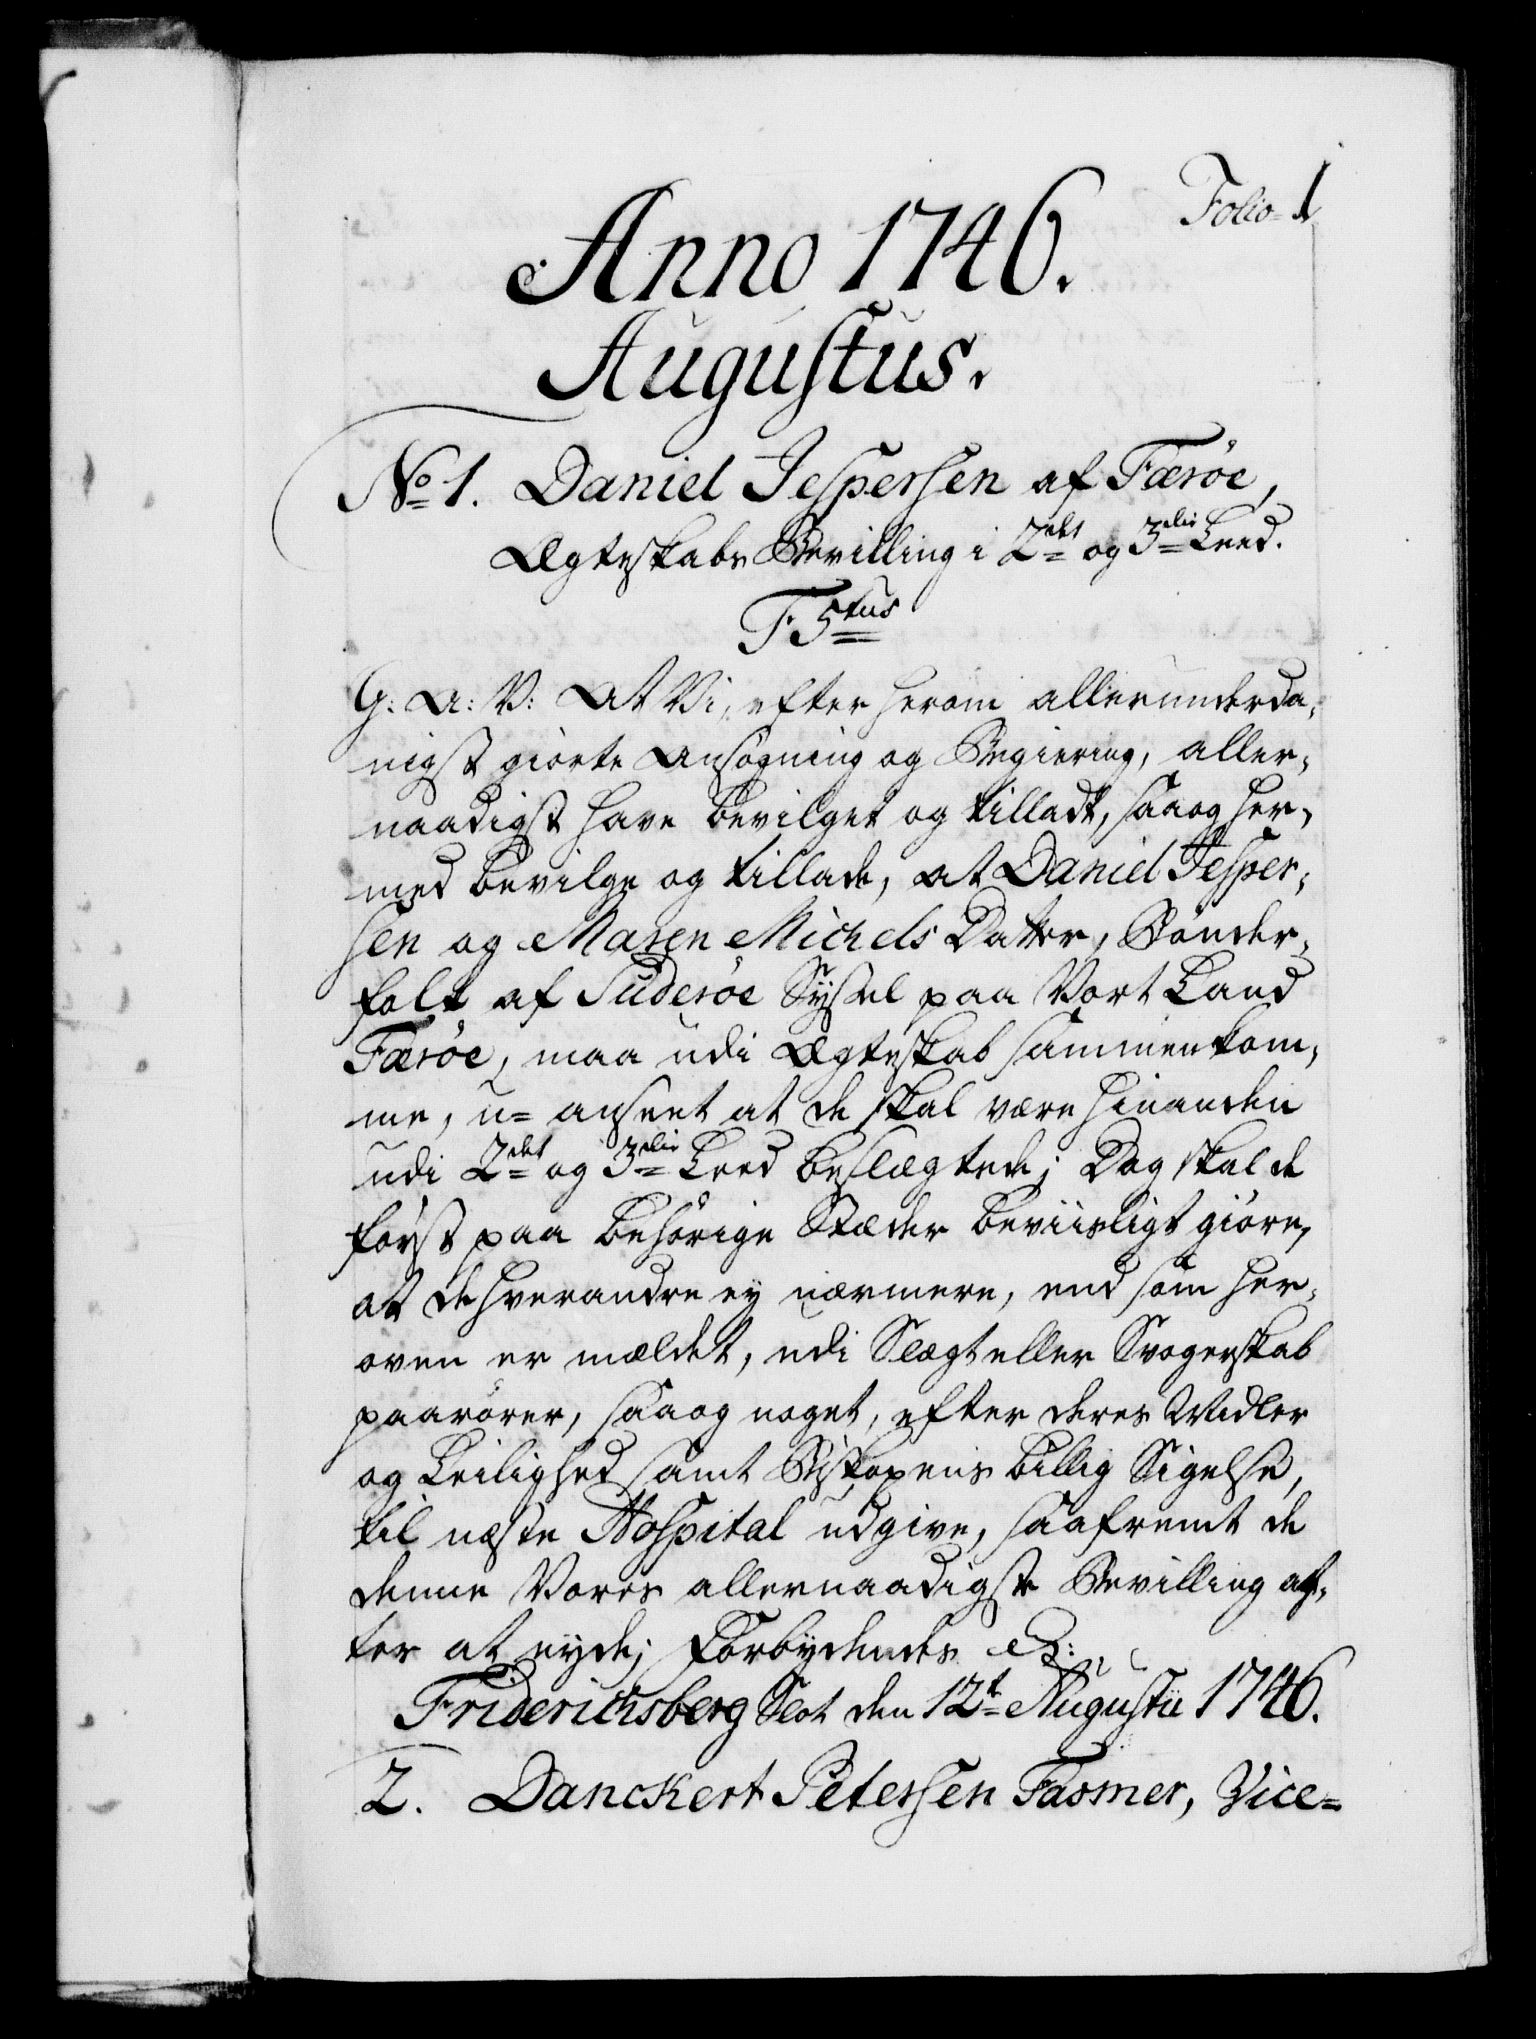 Folio 1
Anno 1746.
Augustus.
No 1. Daniel Jespersen af Færöe,
Ægteskabs Bevilling i 2det og 3die Leed.
F. 5tus
G: A: V: At Vi, efter herom allerunderda,
nigst giorte Ansögning og Begiering, aller,
naadigst have bevilget og tilladt, saa og her,
med bevilge og tillade, at Daniel Jesper,
sen og Maren Michels Datter, Bönder,
folk af Suderöe Syssel paa Vort Land
Færöe, maa udi Ægteskab sammenkom,
me, u= anseet at de skal være hinanden
udi 2det og 3die Leed beslægtede; Dog skal de
först paa behörige Stæder beviisligt giöre,
at de hverandre ey nærmere, end som her,
oven er meldet, udi Slægt eller Svogerskab
paarörer, saa og noget, efter deres Midler
og Leilighed, samt Biskopens billig Sigelse,
til næste Hospital udgive, saafremt de
denne Vores allernaadigste Bevilling ag,
ter at nyde; Forbydendes &:
Friderichsberg Slot den 12t Augustii 1746.
2. Danckert Petersen Fasmer, Vice=